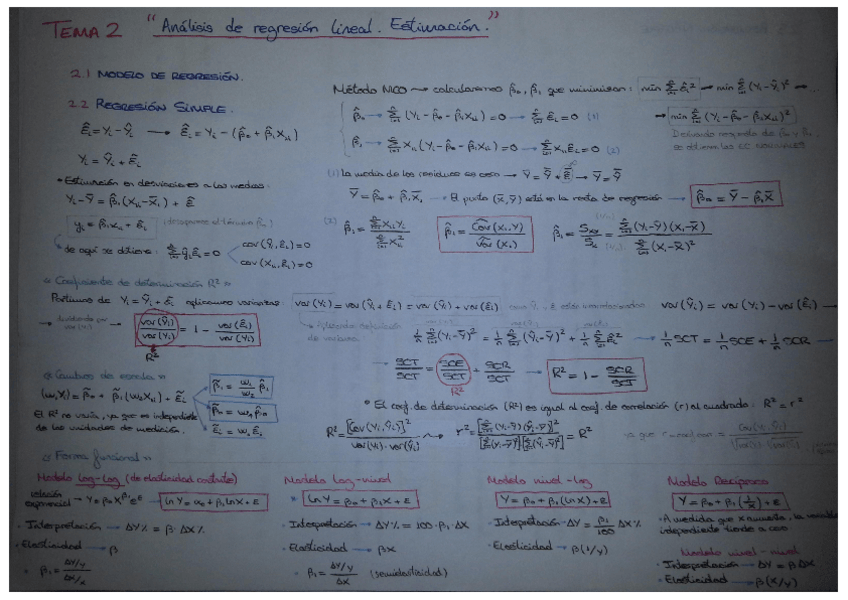 TEMA 2 "Análisis de regresión lineal. Estimación."
2.1 MODELO DE REGRESIÓN.
2.2 REGRESIÓN SIMPLE.
Ê_i = Y_i - Ŷ_i → Ê_i = Y_i - (β̂_0 + β̂_1 X_1i)
Y_i = Ŷ_i + Ê_i
• Estimación en desviaciones a las medias:
Y_i - Ȳ = β̂_1 (X_1i - X̄_1) + Ê
y_i = β̂_1 x_1i + ê_i (desaparece el término β̂_0)
de aquí se obtiene: Σ ŷ_i Ê_i = 0
cov(Ŷ_i, Ê_i) = 0
cov(X_1i, Ê_i) = 0
Método MCO → calcularemos β̂_0, β̂_1 que minimizan: min Σ Ê_i² → min Σ (Y_i - Ŷ_i)² →
→ min Σ (Y_i - β̂_0 - β̂_1 X_1i)²
Derivando respecto de β̂_0 y β̂_1
se obtienen las EC NORMALES
β̂_0 → Σ (Y_i - β̂_0 - β̂_1 X_1i) = 0 → Σ Ê_i = 0 (1)
β̂_1 → Σ X_1i (Y_i - β̂_0 - β̂_1 X_1i) = 0 → Σ X_1i Ê_i = 0 (2)
(1) La media de los residuos es cero → Ȳ = Ŷ + Ê → Ȳ = Ŷ
Ȳ = β̂_0 + β̂_1 X̄_1 → El punto (X̄, Ȳ) está en la recta de regresión → β̂_0 = Ȳ - β̂_1 X̄
(2) β̂_1 = Σ x_1i y_i / Σ x_1i² β̂_1 = Cov(X_1, Y) / Var(X_1) β̂_1 = S_xy / S_x = Σ (Y_i - Ȳ)(X_i - X̄) / Σ (X_i - X̄)²
« Coeficiente de determinación R² »
Partimos de Y_i = Ŷ_i + Ê_i aplicamos varianzas: var(Y_i) = var(Ŷ_i + Ê_i) = var(Ŷ_i) + var(Ê_i) var(Ŷ_i) = var(Y_i) - var(Ê_i) →
→ dividiendo por var(Y_i) → var(Ŷ_i) / var(Y_i) = 1 - var(Ê_i) / var(Y_i)
R²
Aplicando definición de varianza
1/n Σ (Y_i - Ȳ)² = 1/n Σ (Ŷ_i - Ȳ)² + 1/n Σ Ê_i² → 1/n SCT = 1/n SCE + 1/n SCR →
→ SCT/SCT = SCE/SCT + SCR/SCT → R² = 1 - SCR/SCT
R²
« Cambios de escala »
(w_1 Y_i) = β̃_0 + β̃_1 (w_2 X_1i) + Ẽ_i
β̃_1 = w_1/w_2 β̂_1
β̃_0 = w_1 β̂_0
Ẽ_i = w_1 Ê_i
El R² no varía, ya que es independiente
de las unidades de medición.
• El coef. de determinación (R²) es igual al coef. de correlación (r) al cuadrado: R² = r²
R² = [Cov(Y_i, Ŷ_i)]² / var(Y_i)·var(Ŷ_i) → r² = [Σ (Y_i - Ȳ)(Ŷ_i - Ȳ)]² / [Σ (Y_i - Ȳ)²][Σ (Ŷ_i - Ȳ)²] = R²
« Forma funcional »
Modelo log-log (de elasticidad constante)
relación exponencial → Y = β_0 X^β_1 e^E → ln Y = α_0 + β_1 ln X + E
· Interpretación → ΔY% = β · ΔX%
· Elasticidad → β
· β_1 = (ΔY/Y) / (ΔX/X)
Modelo log-nivel
ln Y = β_0 + β_1 X + E
· Interpretación → ΔY% = 100 · β_1 · ΔX
· Elasticidad → βX
· β_1 = (ΔY/Y) / ΔX (semielasticidad)
Modelo nivel-log
Y = β_0 + β_1 (ln X) + E
· Interpretación → ΔY = β_1/100 ΔX%
· Elasticidad → β(1/Y)
Modelo Recíproco
Y = β_0 + β_1 (1/X) + E
· A medida que X aumenta, la variable
independiente tiende a cero
Modelo nivel-nivel
· Interpretación → ΔY = β ΔX
· Elasticidad → β(X/Y)